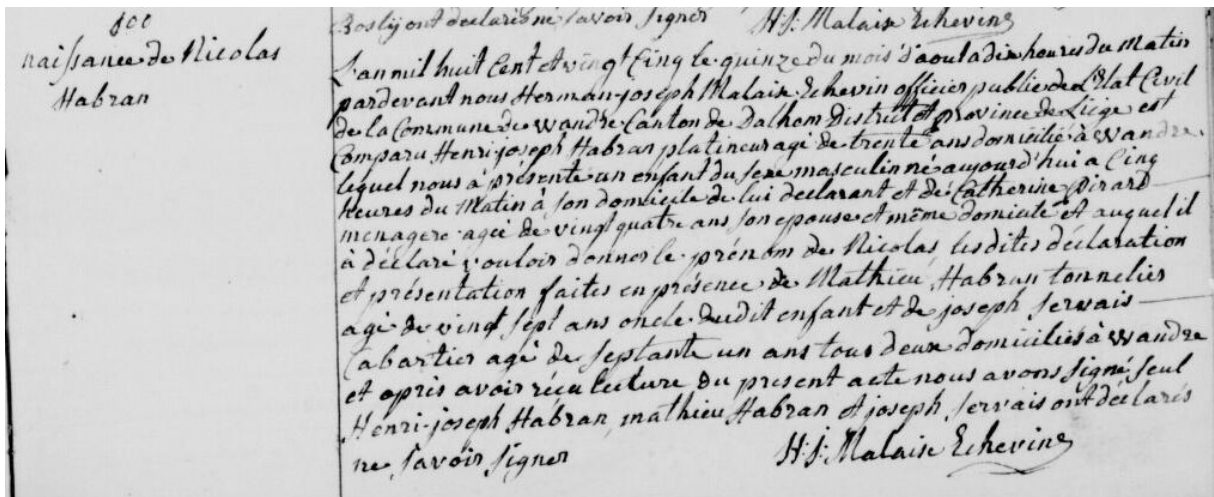 100
naissance de Nicolas
Habran
Bosly ont declaré ne savoir signer H: J: Malaise Echevin
L'an mil huit Cent et vingt Cinq le quinze du mois d'aout a dix heures du Matin
pardevant nous Herman-joseph Malaise Echevin officier public de L'Etat Civil
de la Commune de Wandre Canton de Dalhem District et province de Liège est
Comparu Henri-joseph Habran platineur agé de trente ans domicilié à Wandre
lequel nous à présenté un enfant du sexe masculin né aujourd'hui a Cinq
heures du Matin à son domicile de lui declarant et de Catherine Pirard
menagere agée de vingt quatre ans son epouse et même domicile et auquel il
à déclaré vouloir donner le prénom de Nicolas, lesdites déclaration
et présentation faites en présence de Mathieu Habran tonnelier
agé de vingt sept ans oncle dudit enfant et de joseph Servais
Cabartier agé de septante un ans tous deux domiciliés à Wandre
et après avoir récu lecture du present acte nous avons signé seul
Henri-joseph Habran, mathieu Habran et joseph Servais ont déclarés
ne savoir signer H: J: Malaise Echevin